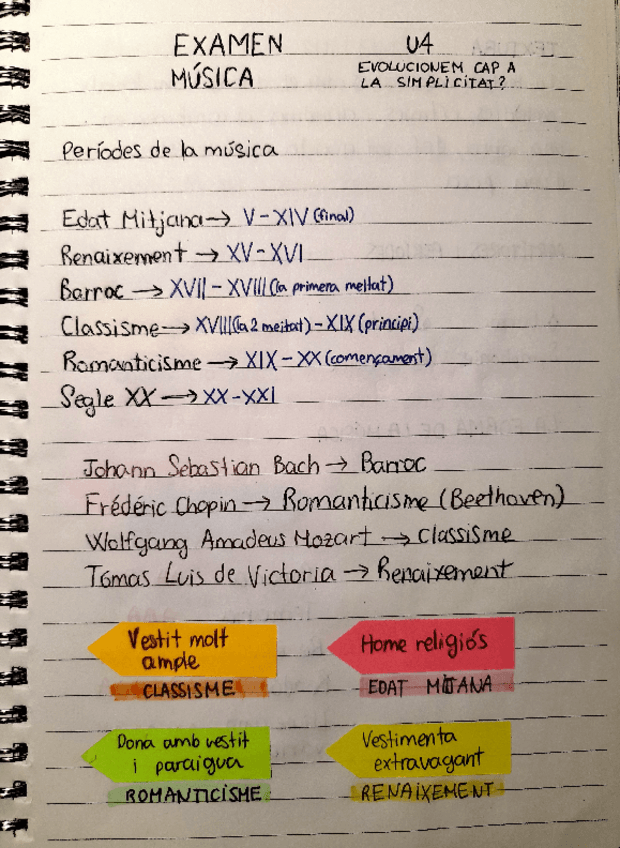 EXAMEN
MÚSICA
U4
EVOLUCIONEM CAP A
LA SIMPLICITAT?
Períodes de la música
Edat Mitjana → V - XIV (final)
Renaixement → XV - XVI
Barroc → XVII - XVIII (la primera meitat)
Classisme → XVIII (la 2 meitat) - XIX (principi)
Romanticisme → XIX - XX (començament)
Segle XX → XX - XXI
Johann Sebastian Bach → Barroc
Frédéric Chopin → Romanticisme (Beethoven)
Wolfgang Amadeus Mozart → Classisme
Tomas Luis de Victoria → Renaixement
Vestit molt
ample
CLASSISME
Home religiós
EDAT MITJANA
Dona amb vestit
i paraigua
ROMANTICISME
Vestimenta
extravagant
RENAIXEMENT